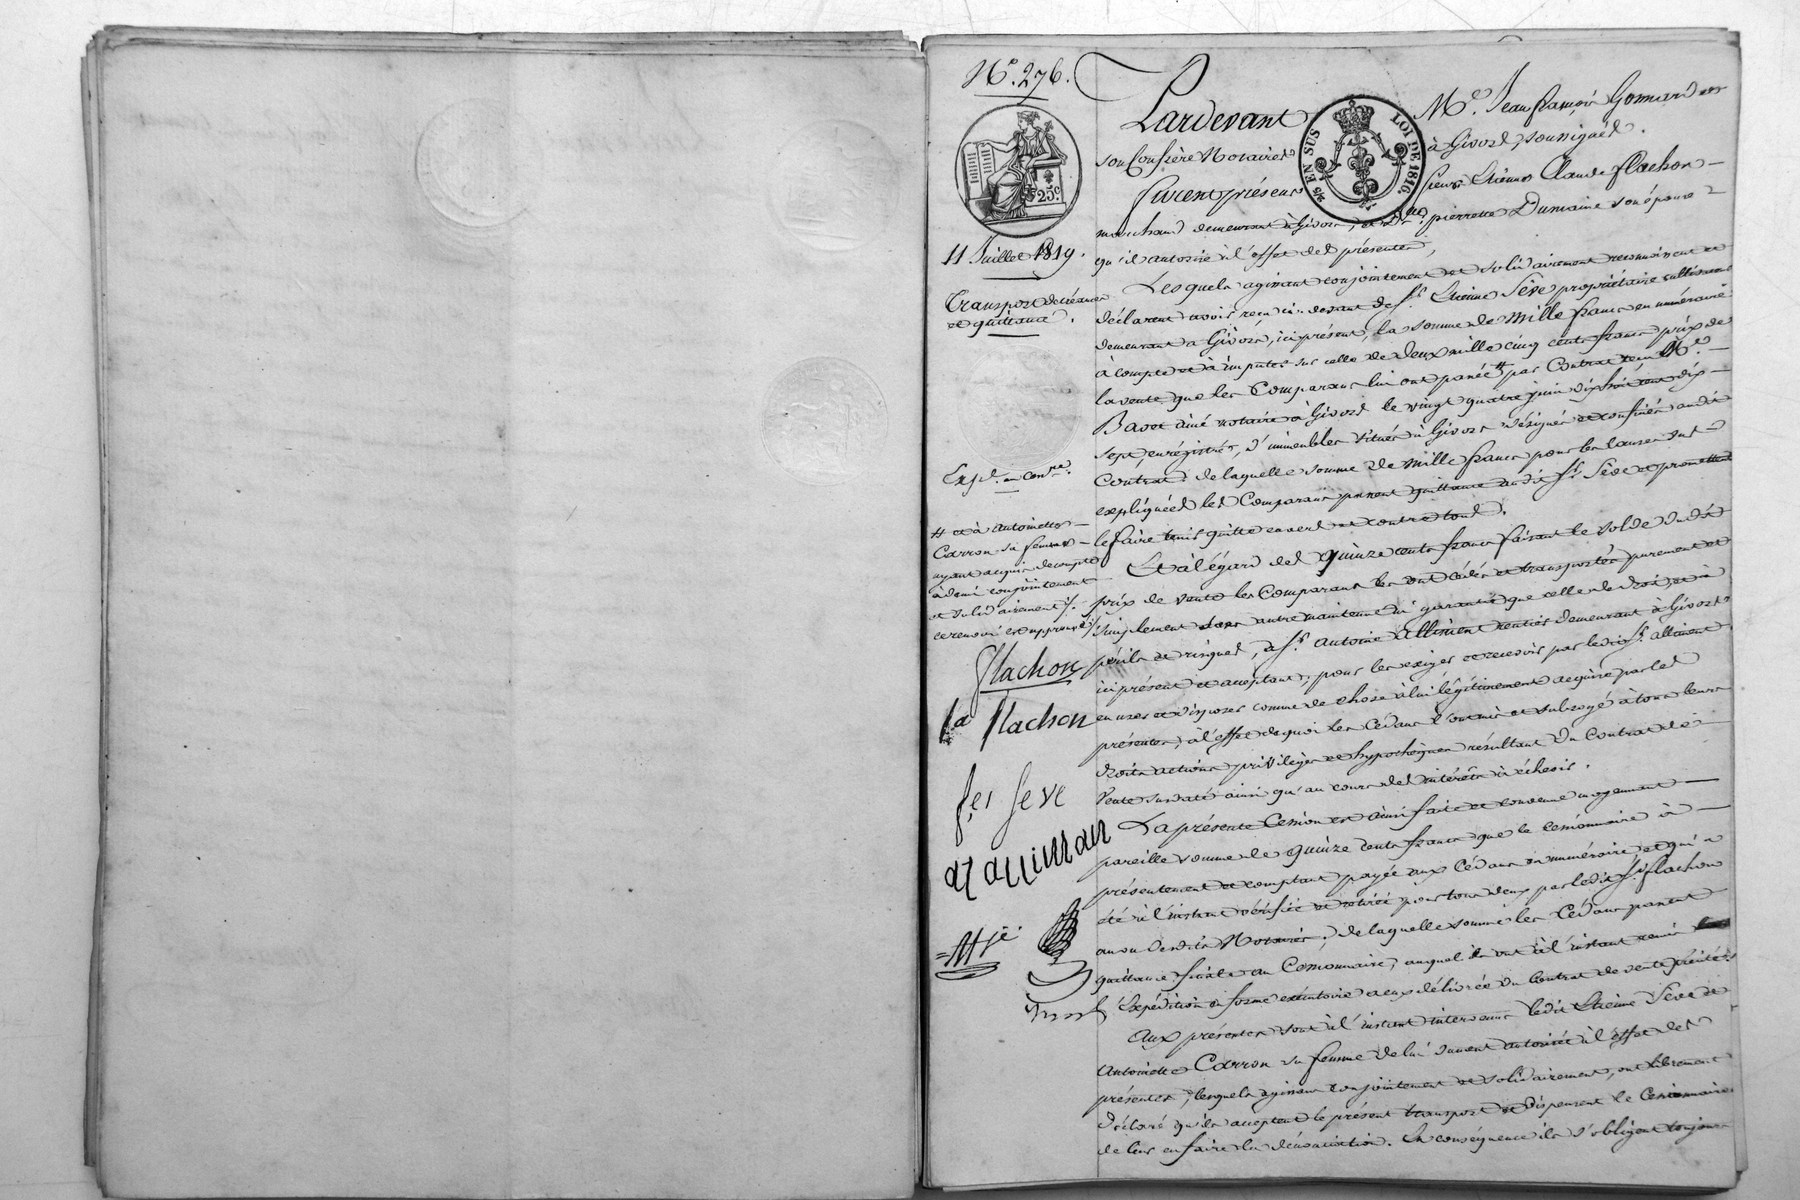 N.º 276.
25.c
11 Juillet 1819.
Transport de créance
et quittance.
Expd. en
# et à Antoinette
Carron sa femme
ayant acquis de compte
à demi conjointement
et solidairement /.
ce renvoi est approuvé /.
flachon
fa flachon
fes seve
Pardevant Me. Jean françois Gonnard et
son Confrère Notaires à Givors, soussignés.
EN SUS LOI DE 1816.
furent présens sieur Etienne Claude flachon
marchand demeurant à Givors, et De. pierrette Dumaine son épouse
qu'il autorise à l'effet des présentes,
Lesquels agissant conjointement et solidairement reconnoissent et
déclarent avoir reçu ci-devant de sr. Etienne Sève propriétaire cultivateur
demeurant à Givors, ici présent, la somme de Mille francs en numéraire
à compte et à imputer sur celle de Deux mille cinq cents francs prix de
la vente que les Comparans lui ont passée # par Contrat reçu Me.
Bavet ainé notaire à Givors le vingt quatre juin dix huit cent dix-
sept, enrégistré, d'immeubles situés à Givors désignés et confinés audit
Contrat: de laquelle somme de Mille francs pour les causes sus-
expliquées les Comparans passent quittance audit sr. Sève et promettent
le faire tenir quitte envers et contre tous.
Et à légard des quinze cents francs faisant le solde dudit
prix de vente les Comparans les ont cédés et transportés purement et
simplement sans autre maintenue ni garantie que celle de droit et à
périls et risques, à sr. Antoine Alliment rentier demeurant à Givors
ici présent et acceptant, pour les exiger et recevoir par ledit sr. Alliment
en user et disposer comme de chose à lui légitimement acquise par les
présentes, à l'effet de quoi les Cédans l'ont mis et subrogé à tous leurs
droits actions privilèges et hypothèques résultant du Contrat de
Vente susdaté ainsi qu'au cours des intérêts à échoir.
La présente Cession est ainsi faite et convenue moyennant
pareille somme de quinze cents francs que le cessionnaire a
présentement et comptant payée aux Cédans en numéraire et qui a
été à l'instant vérifiée et retirée pour tous deux par ledit sr. flachon
au vu desdits Notaires; de laquelle somme les Cédans passent
quittance finale au Cessionnaire, auquel ils ont à l'instant remis
l'Expédition en forme exécutoire à eux délivrée du Contrat de vente précité.
Aux présentes sont à l'instant intervenus ledit Etienne Sève et
Antoinette Carron sa femme de lui dument autorisée à l'effet des
présentes, lesquels agissant conjointement et solidairement, ont librement
déclaré qu'ils acceptent le présent transport et dispensent le Cessionnaire
de leur en faire la dénonciation. En conséquence ils s'obligent toujours